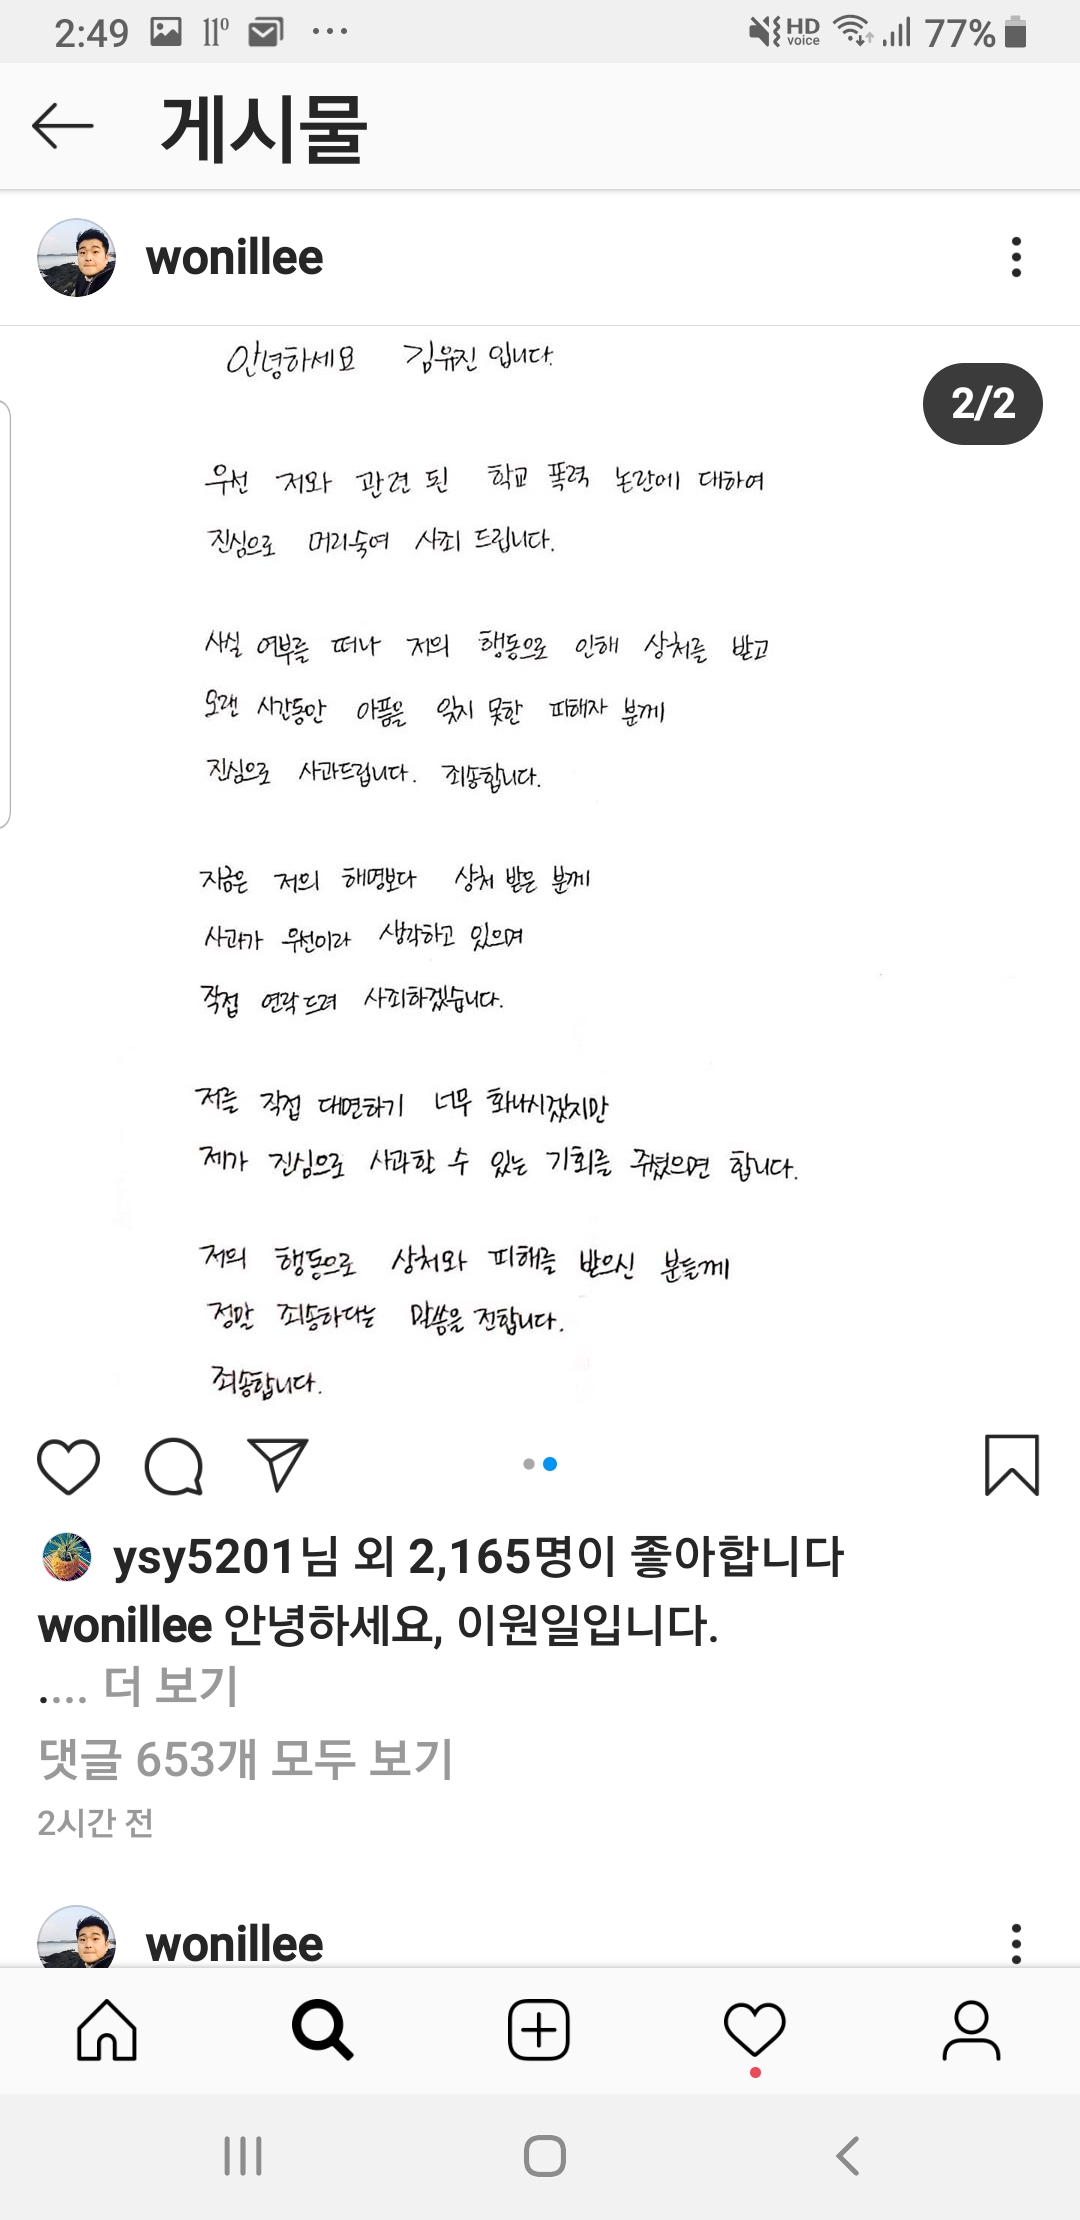 2:49 11⁰ ... HD voice 77%
게시물
wonillee
안녕하세요 김유진 입니다.
2/2
우선 저와 관련 된 학교 폭력 논란에 대하여
진심으로 머리숙여 사죄 드립니다.
사실 여부를 떠나 저의 행동으로 인해 상처를 받고
오랜 시간동안 아픔을 잊지 못한 피해자 분께
진심으로 사과드립니다. 죄송합니다.
지금은 저의 해명보다 상처 받은 분께
사과가 우선이라 생각하고 있으며
직접 연락드려 사죄하겠습니다.
저를 직접 대면하기 너무 화나시겠지만
제가 진심으로 사과할 수 있는 기회를 주셨으면 합니다.
저의 행동으로 상처와 피해를 받으신 분들께
정말 죄송하다는 말씀을 전합니다.
죄송합니다.
ysy5201님 외 2,165명이 좋아합니다
wonillee 안녕하세요, 이원일입니다.
.... 더 보기
댓글 653개 모두 보기
2시간 전
wonillee